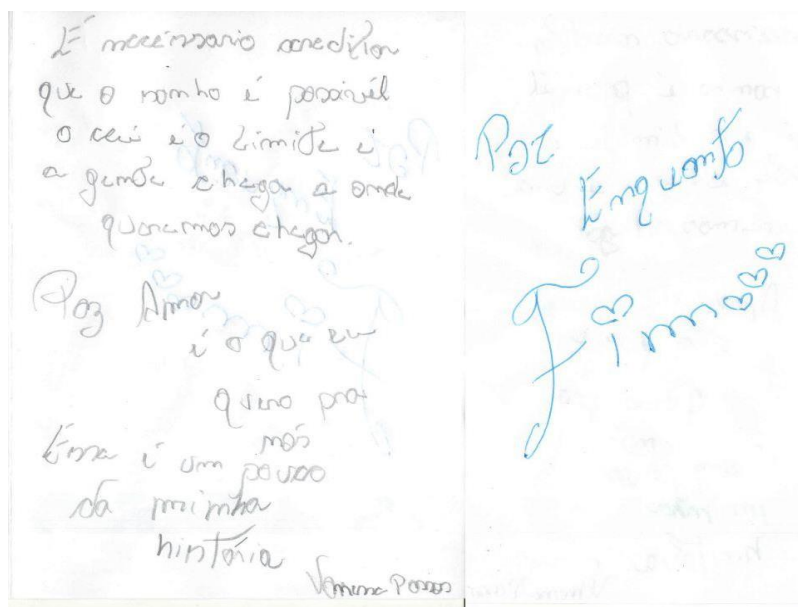 É necessario acreditar
que o sonho é possivél
o céu é o Limite e
a gente chega a onde
queremos chegar.
Paz Amor
é o que eu
quero pra
nós
Essa é um pouco
da minha
história
Vanessa Passos
Paz
Enquanto
Fim